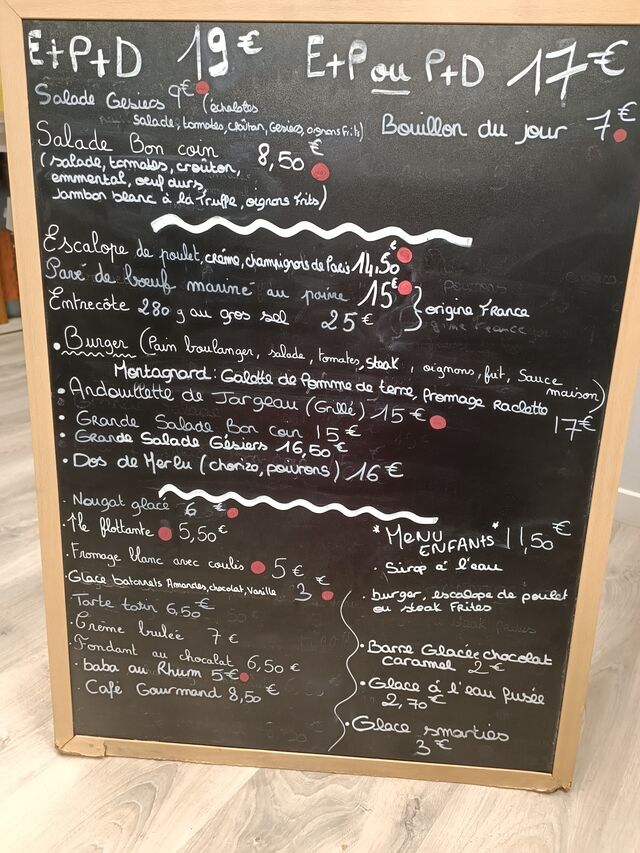 E+P+D 19€
E+P ou P+D 17€
Salade Gesiers 9€ (échalotes
salade, tomates, croûton, Gesiers, oignons frits)
Bouillon du jour 7€
Salade Bon coin 8,50€
(salade, tomates, croûton,
emmental, oeuf durs,
jambon blanc à la truffe, oignons frits)
Escalope de poulet, crème, champignons de Paris 14,50€
Pavé de boeuf mariné au poivre 15€
Entrecôte 280 g au gros sel 25€
} origine France
• Burger (Pain boulanger, salade, tomates, steak, oignons, frit, Sauce maison)
Montagnard: Galette de Pomme de terre, fromage Raclette 17€
• Andouillette de Jargeau (Grillé) 15€
• Grande Salade Bon coin 15€
• Grande Salade Gésiers 16,50€
• Dos de Merlu (chorizo, poivrons) 16€
• Nougat glacé 6€
• île flottante 5,50€
• Fromage blanc avec coulis 5€
• Glace batonnets Amandes, chocolat, Vanille 3€
Tarte tatin 6,50€
• Crème brulée 7€
• Fondant au chocolat 6,50€
• baba au Rhum 5€
• Café Gourmand 8,50€
* MENU ENFANTS * 11,50€
• Sirop à l'eau
• burger, escalope de poulet
ou steak Frites
• Barre Glacée chocolat
caramel 2€
• Glace à l'eau fusée
2,70€
• Glace smarties
3€